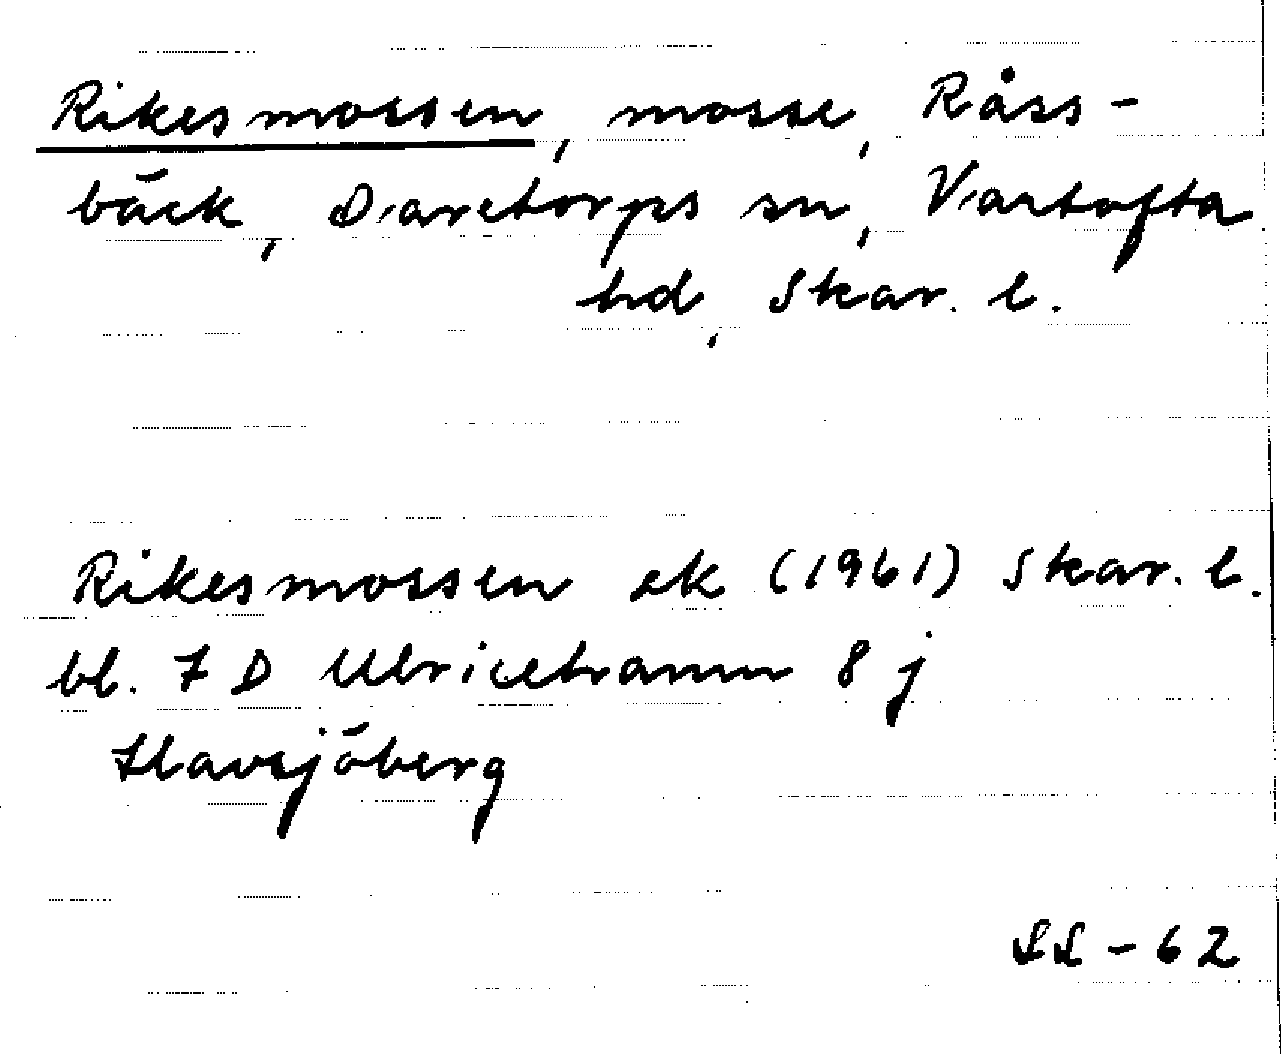 Rikesmossen, mosse, Råss-
bäck, Daretorps sn, Vartofta
hd, Skar. l.
Rikesmossen ek (1961) Skar. l.
bl. 7 D Ulricehamn 8 j
Havsjöberg
SL - 62